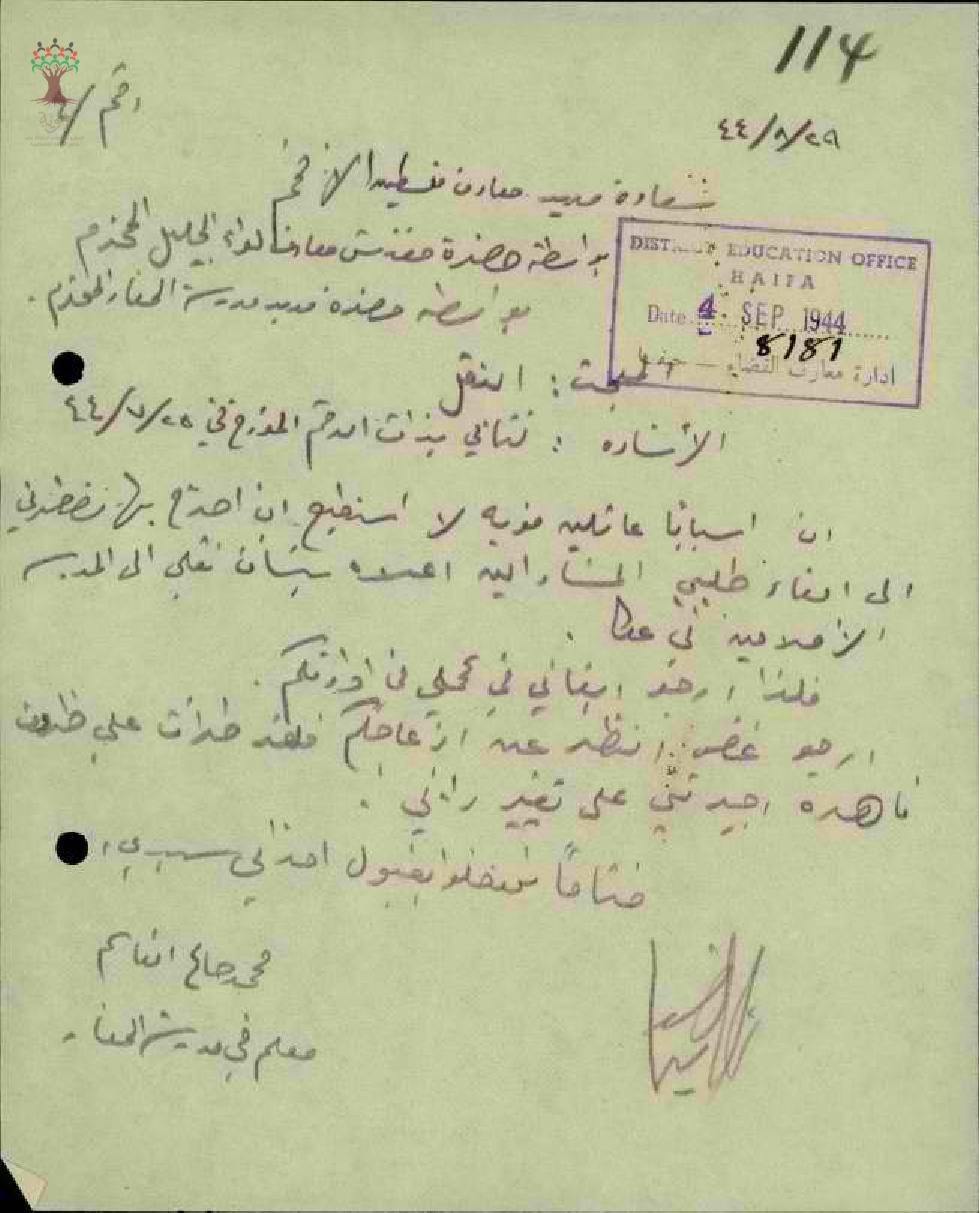 114
رقم /٤
٤٤/٨/٢٩
سعادة مدير معارف فلسطين الافخم
بواسطة حضرة مفتش معارف لواء الجليل المحترم
بواسطة حضرة مدير مدرسة المغار المحترم.
DISTRICT EDUCATION OFFICE
HAIFA
Date 4 SEP 1944
8181
ادارة معارف القضاء — حيفا
المبحث : النقل
الأشاره : كتابي بذات الرقم المؤرخ في ٤٤/٧/٢٥
ان اسبابا عائليه قويه لا استطيع ان اصرح بها تضطرني
الى الغاء طلبي المشار اليه اعلاه بشأن نقلي الى المدرسه
الأحمديه في عكا .
فلذا ارجو ابقائي في محلي في اوراقكم .
ارجو غض النظر عن ازعاجكم فلقد طرأت علي ظروف
قاهره اجبرتني على تغيير رأيي .
ختاماً تفضلوا بقبول احترامي سيدي ،
محمد صالح القاسم
معلم في مدرسة المغار